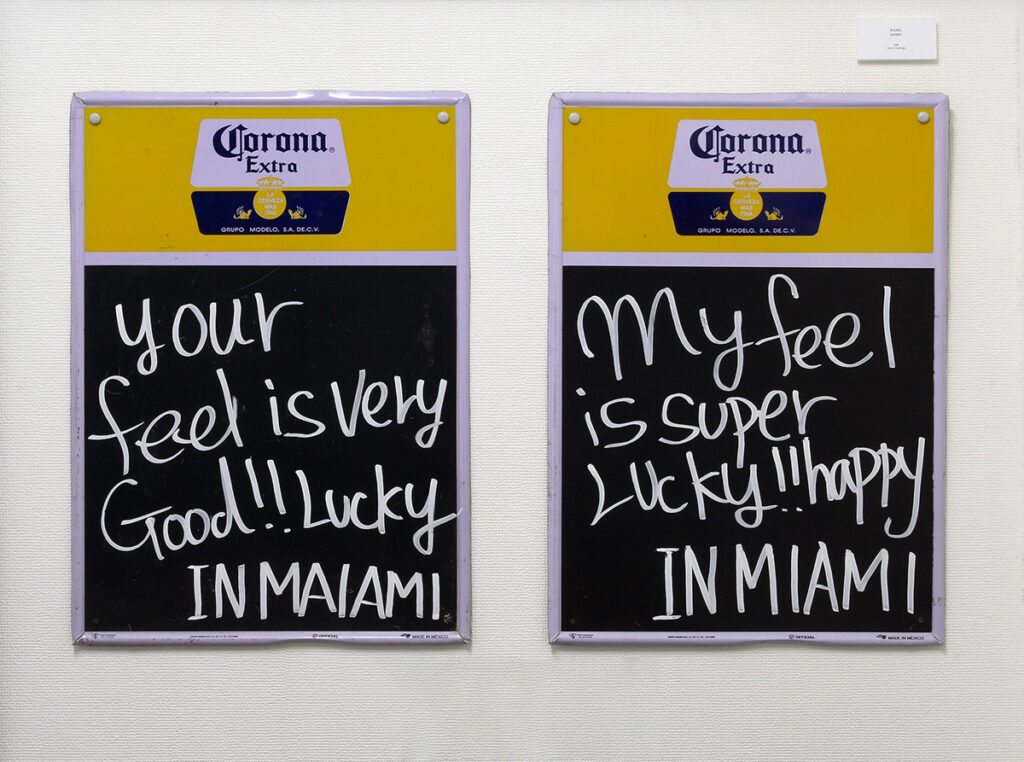 Corona
Extra
LA
CERVEZA
MAS
FINA
GRUPO MODELO, S.A. DE C.V.
your
feel is very
Good!! Lucky
IN MAIAMI
OFFICIAL
MADE IN MEXICO
Corona
Extra
LA
CERVEZA
MAS
FINA
GRUPO MODELO, S.A. DE C.V.
My feel
is super
Lucky!! happy
IN MIAMI
OFFICIAL
MADE IN MEXICO